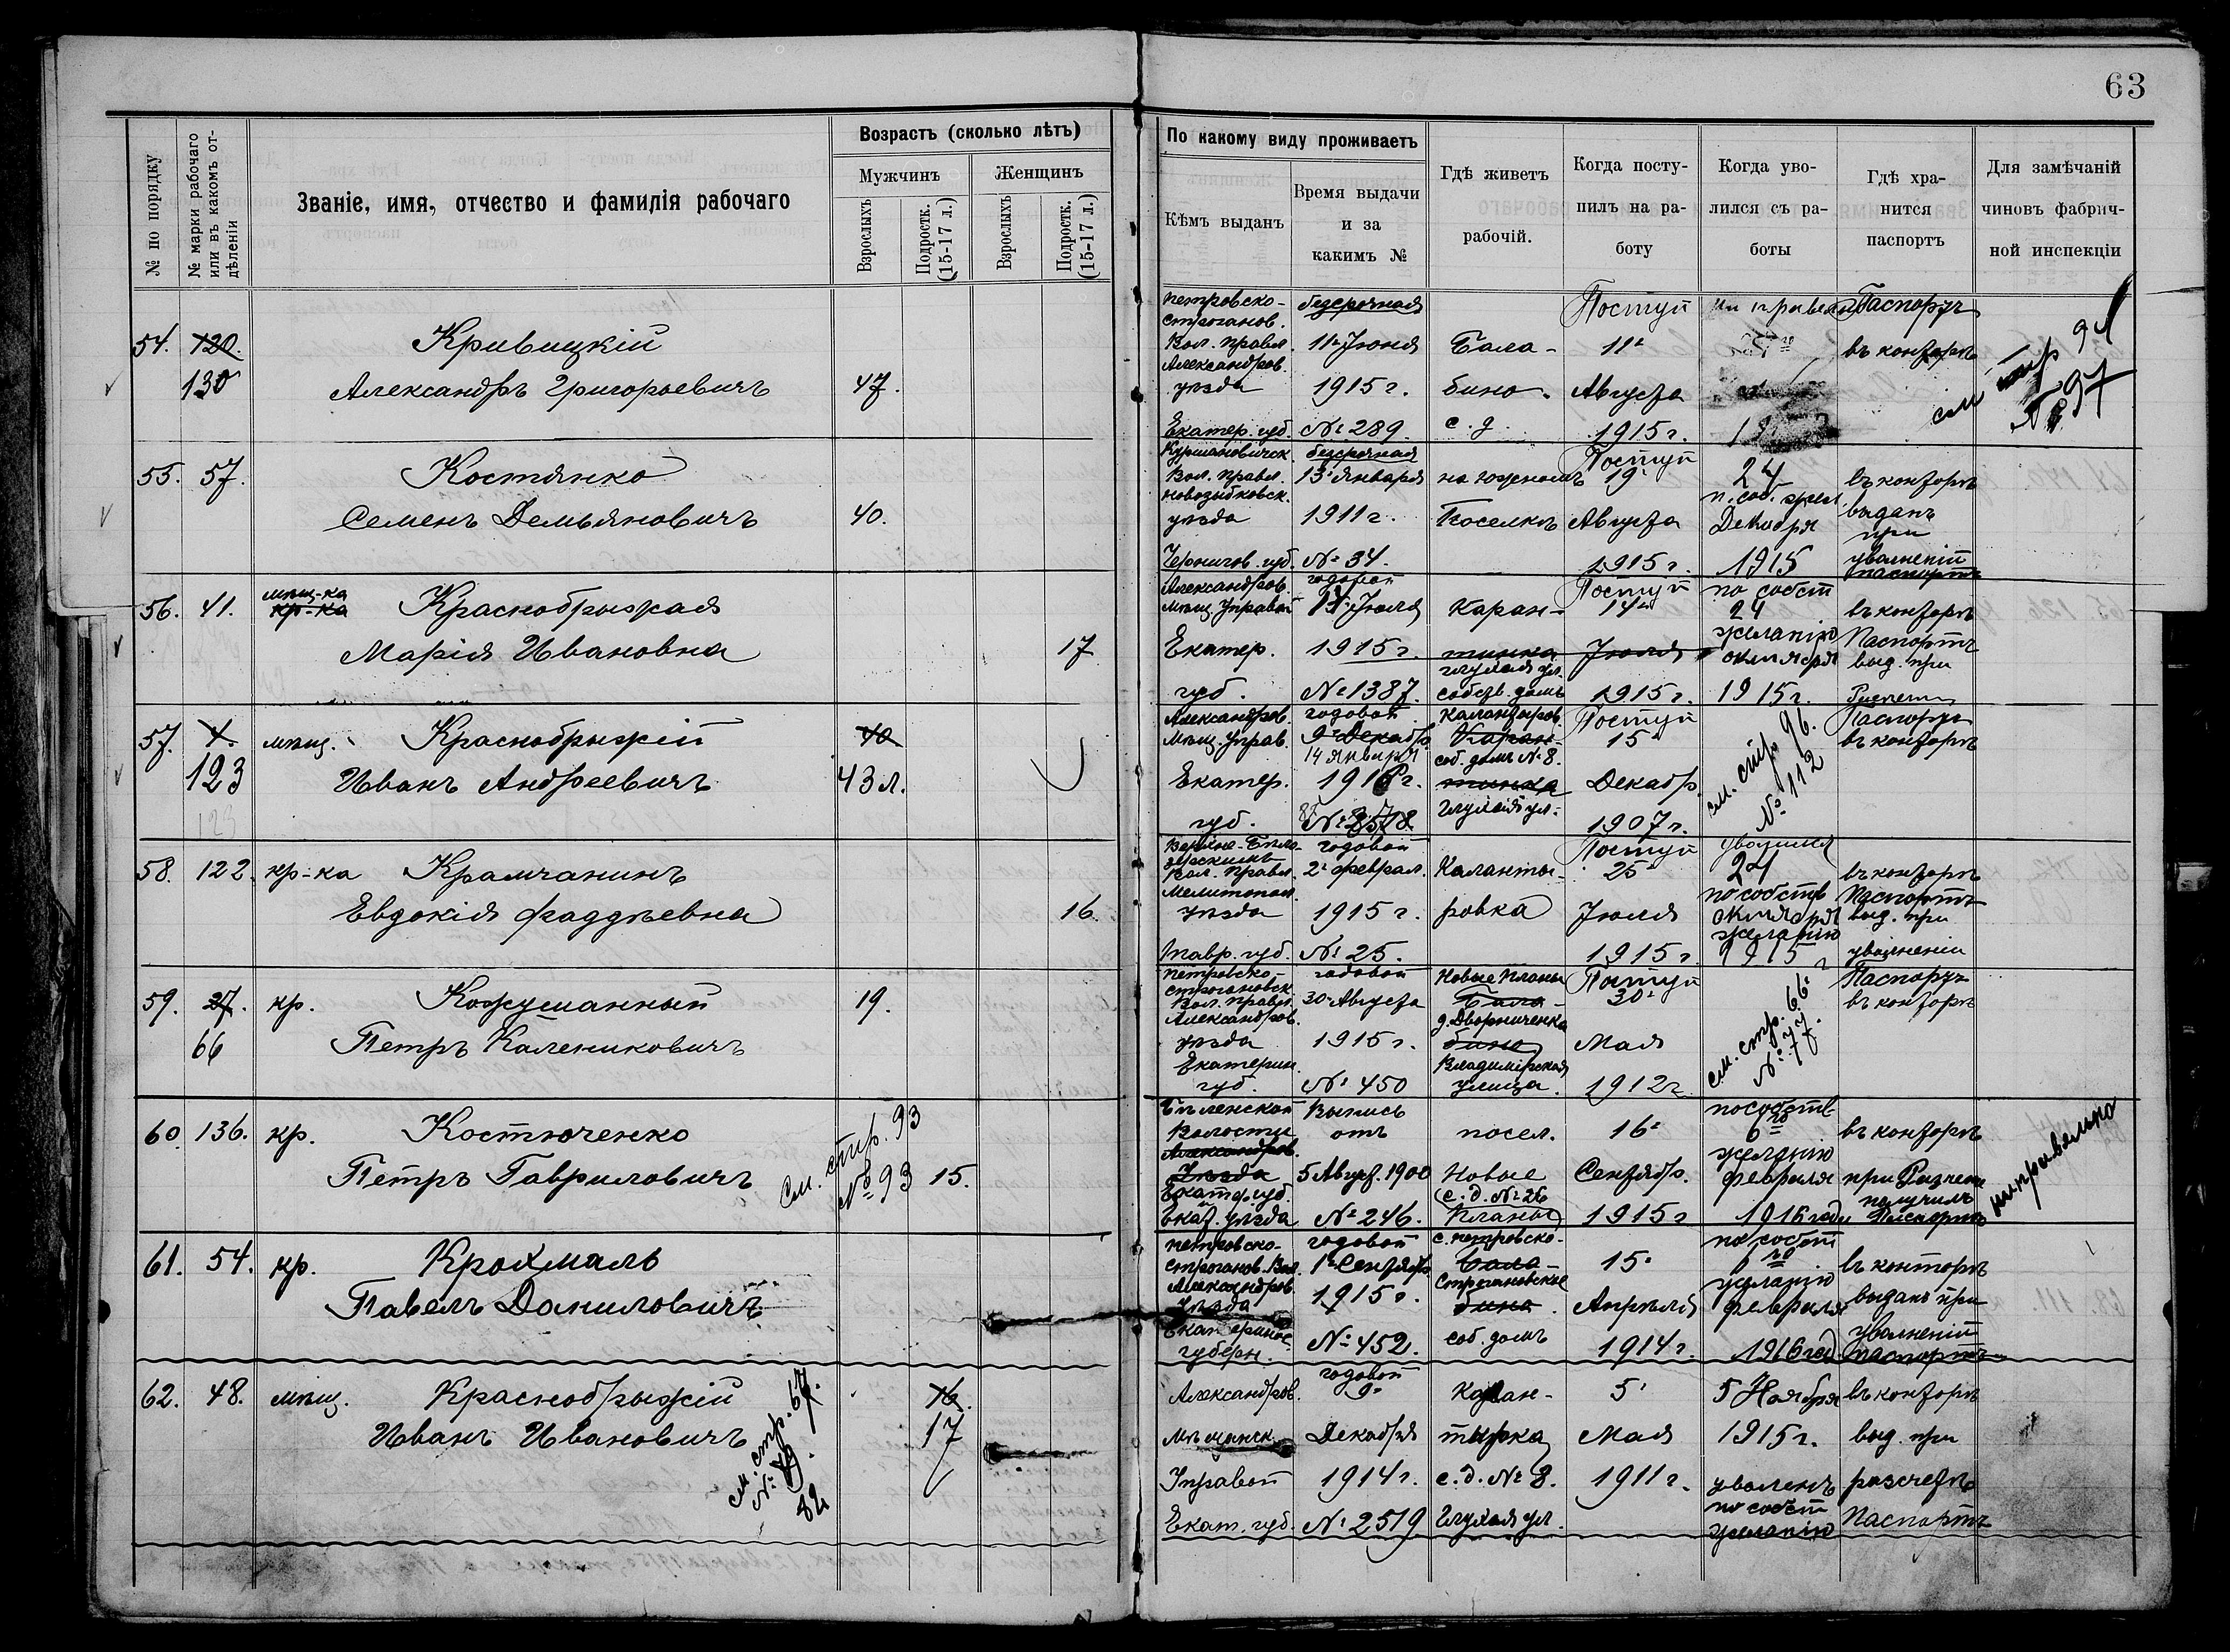 63
№ по порядку
№ марки рабочаго или въ какомъ отдѣленіи
Званіе, имя, отчество и фамилія рабочаго
Возрастъ (сколько лѣтъ)
Мужчинъ
Женщинъ
Взрослыхъ
Подростк. (15-17 л.)
Взрослыхъ
Подростк. (15-17 л.)
По какому виду проживаетъ
Кѣмъ выданъ
Время выдачи
и за
какимъ №
Гдѣ живетъ
рабочій.
Когда посту-
пилъ на ра-
боту
Когда уво-
лился съ ра-
боты
Гдѣ хра-
нится
паспортъ
Для замѣчаній
чиновъ фабрич-
ной инспекціи
54. 120.
130
Кривицкій
Александръ Григорьевичъ
47.
Петровско-
строганов.
Вол. правл.
Александров.
уѣзда
Екатер. губ.
безсрочная
11го Іюня
1915 г.
№ 289.
Бала-
бино.
с. д.
Поступ
11го
Августа
1915 г.
Паспортъ
въ конторѣ
см стр 91
№ 97
55. 57.
Костянко
Семенъ Демьяновичъ
40.
Вол. правл.
Новозыбковск.
уѣзда
Чернигов. губ.
безсрочная
13го Января
1911 г.
№ 34.
на южномъ
Поселкѣ
Поступ
19го
Августа
1915 г.
24
п. соб. жел.
Декабря
1915
въ конторѣ
выданъ
при
уволненій
паспортъ
56. 41.
мѣщ-ка
кр-ка
Краснобрыжая
Марія Ивановна
17
Александров.
Мѣщ. Управой
Екатер.
губ.
годовой
14го Іюля
1915 г.
№ 1387.
Каран-
тинка
глухая ул.
собств. домъ
Поступ
14го
Іюля
1915 г.
по собст
24
желанію
октября
1915 г.
въ конторѣ
Паспортъ
выд. при
57. 4.
123
мѣщ.
Краснобрыжій
Иванъ Андреевичъ
40
43 л.
Александров.
Мѣщ. Управ.
Екатер.
губ.
годовой
9го Декабр.
14 января
1916 г.
Калантыров.
Каран-
соб. домъ № 8.
тинка
Глухая ул.
Поступ
15го
Декабр.
1907 г.
см. стр. 96.
№ 112
Паспортъ
въ конторѣ
58. 122.
кр-ка
Крамчанинъ
Евдокія Фаддѣевна
16.
Вол. правл.
Мелитопол.
уѣзда
Тавр. губ.
годовой
2го Феврал.
1915 г.
№ 25.
Каланты-
ровка
Поступ
25го
Іюля
1915 г.
24
по собств
октября
желанію
1915 г
въ конторѣ
Паспортъ
выд. при
уволненіи
59. 27.
66
кр.
Кожушанный
Петръ Калениковичъ
19.
Петровско-
строгановск.
Вол. правл.
Александров.
уѣзда
Екатерин.
губ.
годовой
30го Августа
1915 г.
№ 450
Новые Планы
Бала-
д. Дворниченка
бино
Владимірская
улица
Поступ
30го
Мая
1912 г
см. стр. 66.
№ 77.
Паспортъ
въ конторѣ
60. 136.
кр.
Костюченко
Петръ Гавриловичъ
См. стр. 93
№ 93
15.
Бѣленской
Волости
Александров.
Уѣзда
Екатер. губ.
Екат. уѣзда
Выпись
отъ
5 Август. 1900
№ 246.
посел.
Новые
с. д. № 26
Планы
16го
Сентябр.
1915 г
по собств
6го
желанію
февраля
1916 года
въ конторѣ
при Расчетѣ
получилъ
Паспортъ
61. 54.
кр.
Крохмаль
Павелъ Даниловичъ
Петровско-
строганов. Вол.
Александров.
Уѣзда
Екатеринос-
губерн.
годовой
1го Сентябр.
1915 г.
№ 452.
с. Петровско-
Бала-
Строгановское
бино.
соб. домъ
15го
Апрѣля
1914 г.
по собст
желанію
февраля
1916 год
въ конторѣ
выданъ при
уволненій
паспортъ
62. 48.
мѣщ.
Краснобрыжій
Иванъ Ивановичъ
см. стр. 67.
82
16.
17
Александров.
мѣщанск.
Управой
Екат. губ.
годовой
9го
Декабря
1914 г.
№ 2519
Каран-
тырка
с. д. № 8.
Глухая ул.
5го
Мая
1911 г.
5 Ноября
1915 г.
уволенъ
по собст
желанію
въ конторѣ
выд. при
расчетѣ
Паспортъ